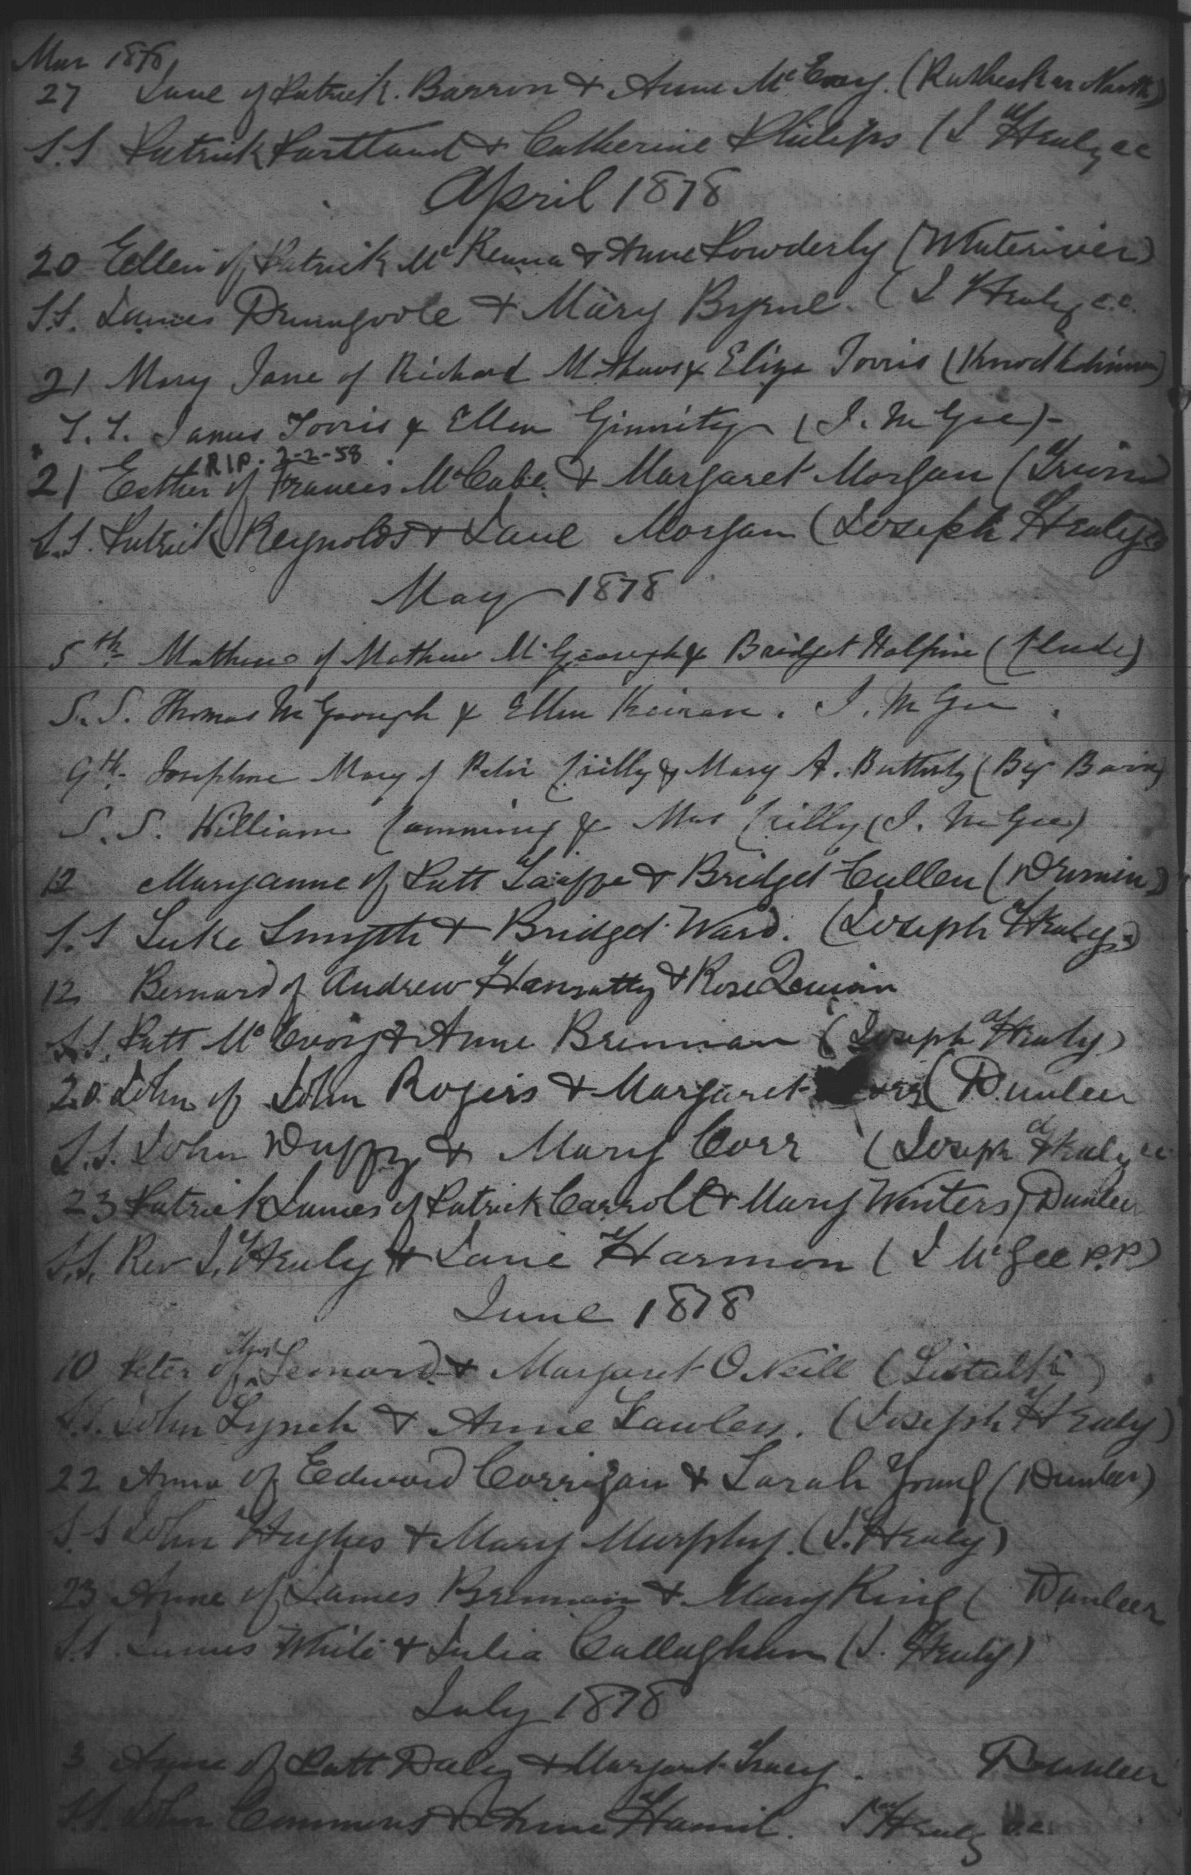 Mar 1878
27 Jane of Patrick Barron & Anne McEnoy. (Rathesker North)
S.S Patrick Partland & Catherine Philips (J Healy cc
April 1878
20 Ellen of Patrick McKenna & Anne Powderly (Whiteriver)
S.S. James Drumgoole & Mary Byrne. (J Healy c.c.
21 Mary Jane of Richard Mathews & Eliza Torris
S.S. James Torris & Ellen Ginnity (J. McGee)-
R.I.P. 2-2-58
21 Esther of Francis McCabe & Margaret Morgan
S.S. Patrick Reynolds & Jane Morgan (Joseph Healy
May 1878
5th Mathew of Mathew McGeough & Bridget Halpin
S.S. Thomas McGeough & Ellen Keiran. J. McGee.
9th. Josephine Mary of Peter Crilly & Mary A. Butterly
S.S. William Cumming & Crilly (J. McGee)
12 Maryanne of Patt Taaffe & Bridget Cullen (Drumin)
S.S Luke Smyth & Bridget Ward. (Joseph Healy)
12 Bernard of Andrew Hanratty & Rose
S.S. Patt McEvoy & Anne Brennan (Joseph Healy)
20 John of John Rogers & Margaret (Dunleer
S.S. John Duffy & Mary Corr (Joseph Healy cc
23 Patrick James of Patrick Carroll & Mary Winters (Dunleer
S.S. Rev J. Healy & Jane Harmon (J McGee P.P.)
June 1878
10 Peter of Leonard & Margaret O Neill
S.S. John Lynch & Anne Lawless. (Joseph Healy)
22 Anne of Edward Corrigan & Sarah Young (Dunleer)
S.S John Hughes & Mary Murphy. (J. Healy)
23 Anne of James Brennan & Mary King (Dunleer
S.S. James White & Julia Callaghan (J. Healy)
July 1878
3 Anne of Patt Daly & Margaret Tracy. Dunleer
S.S. John Commons & Anne Hamil. J Healy c.c.